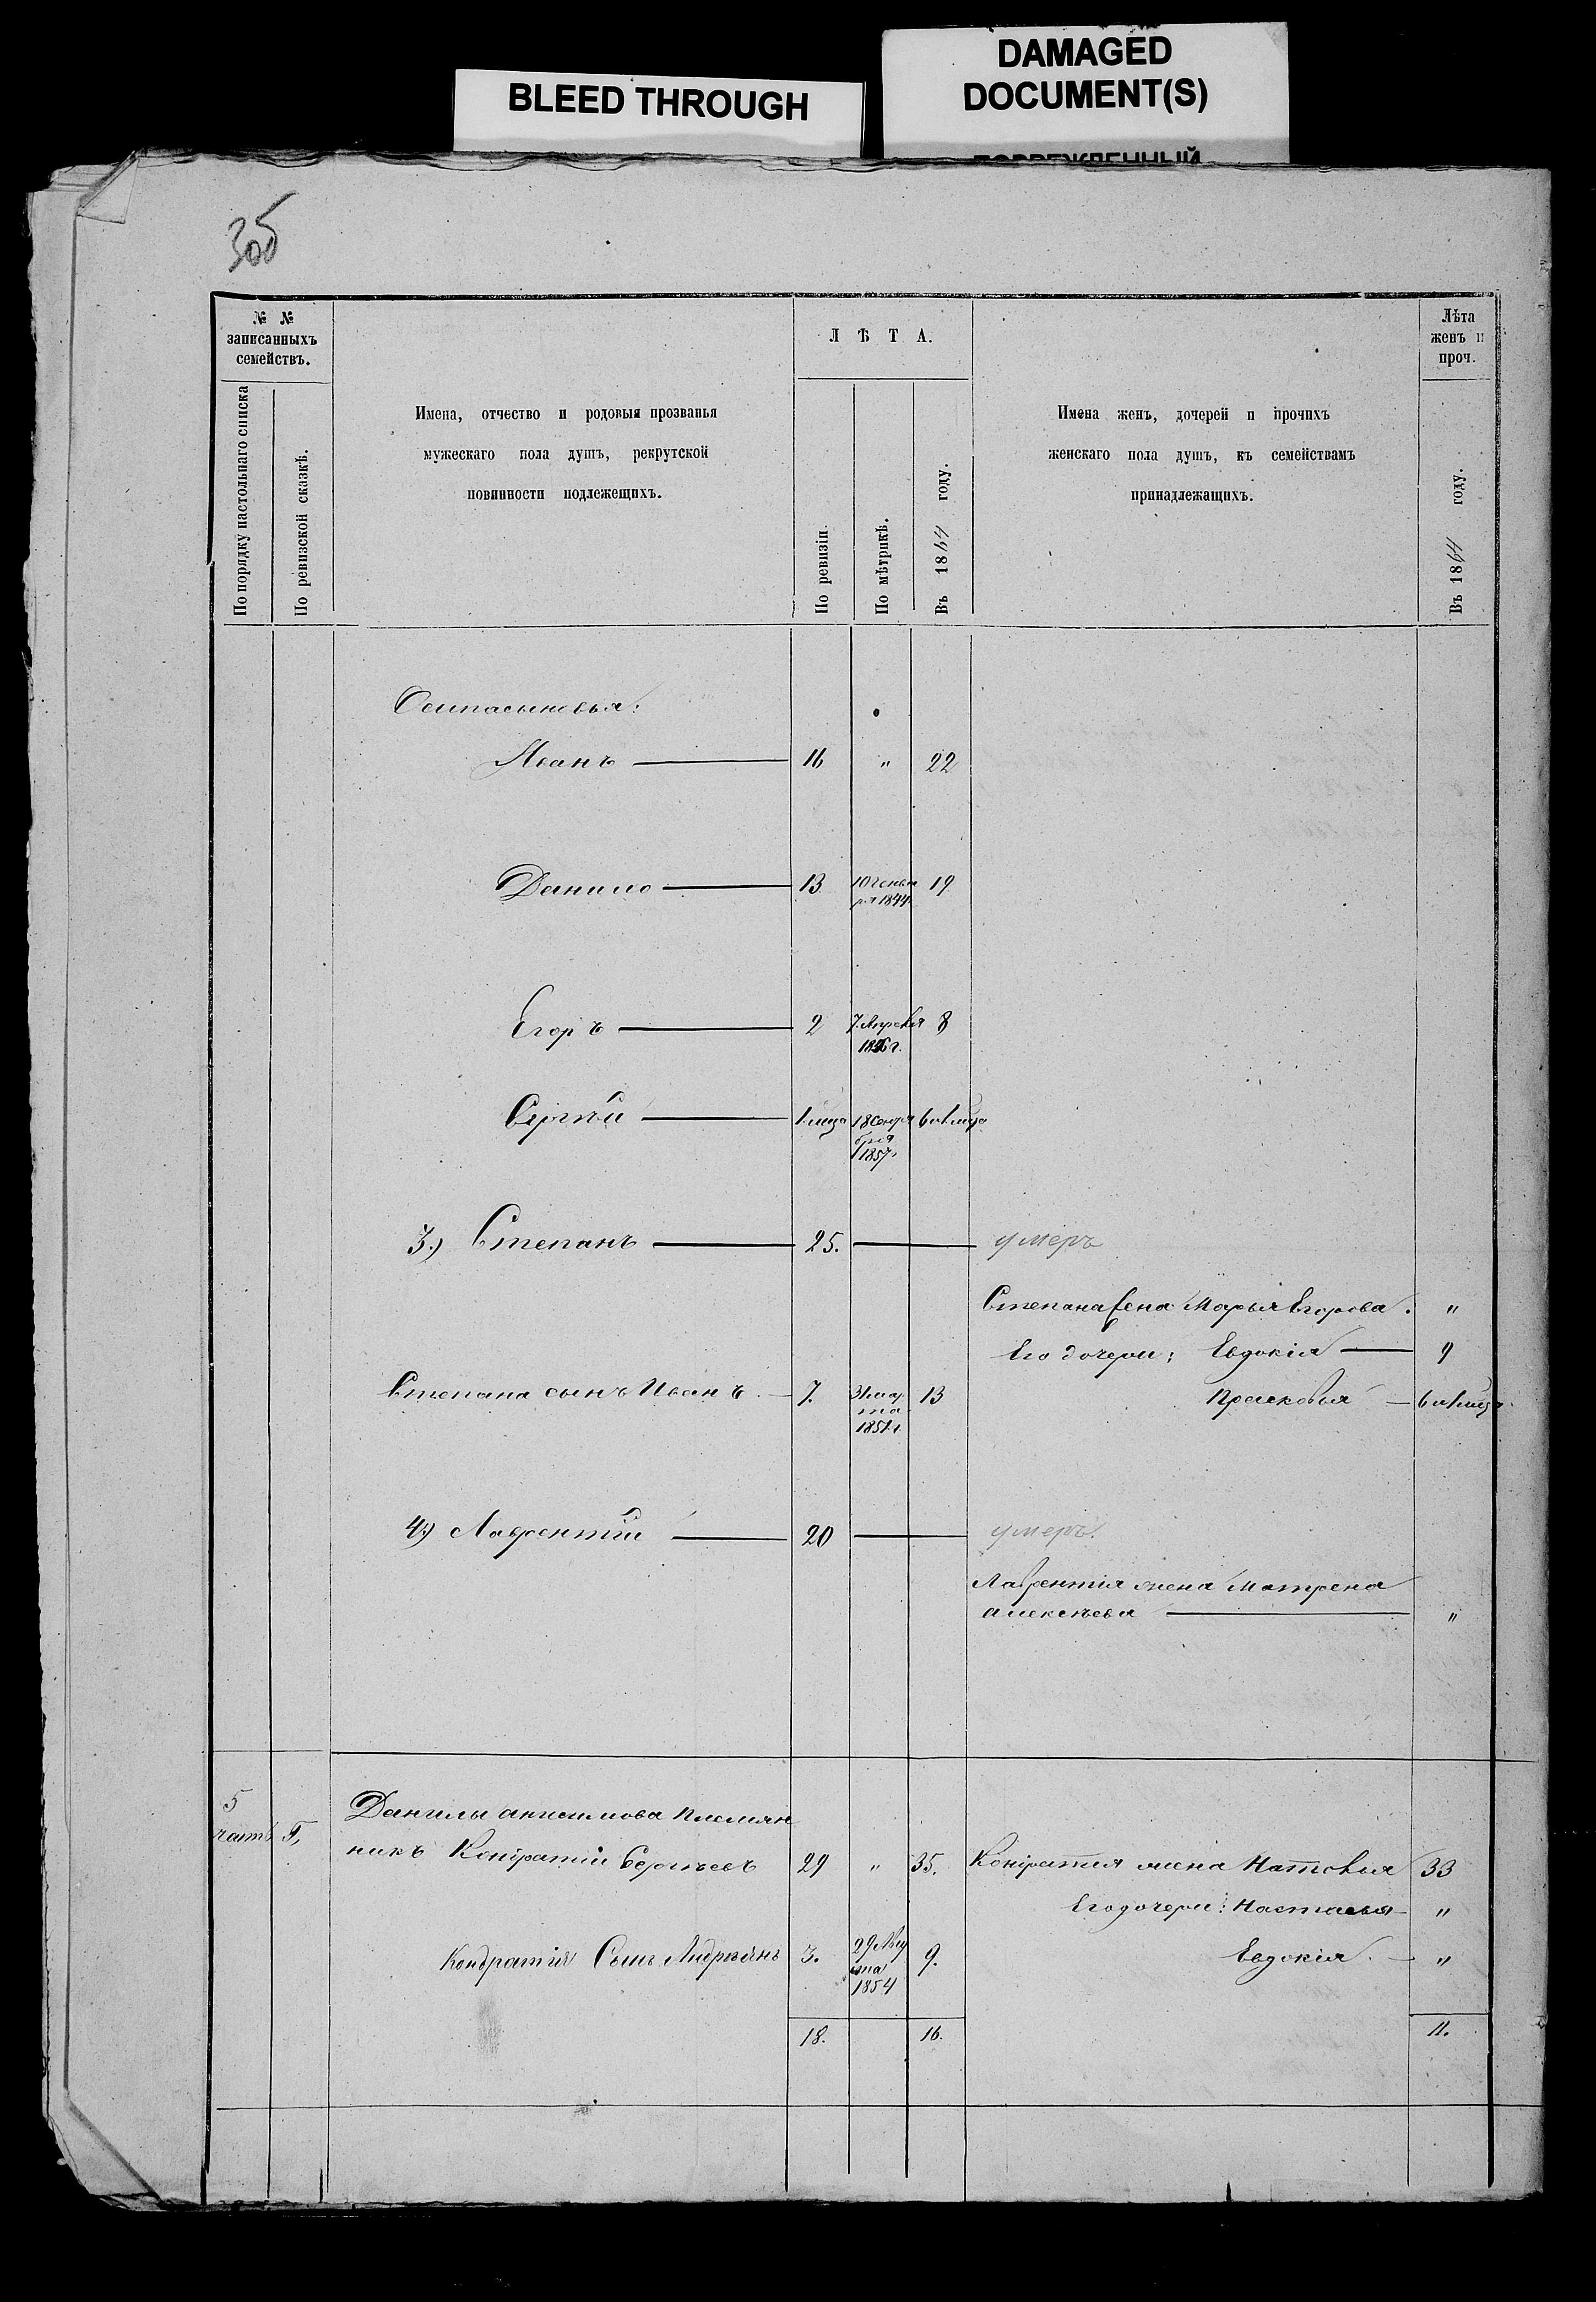 BLEED THROUGH
DAMAGED
DOCUMENT(S)
ПОВРЕЖДЕННЫЙ
305
№ №
записанныхъ
семействъ.
По порядку настольнаго списка
По ревизской сказкѣ.
Имена, отчество и родовыя прозванья
мужескаго пола душъ, рекрутской
повинности подлежещихъ.
ЛѢТА.
По ревизіи.
По мѣтрикѣ.
Въ 1864 году.
Имена женъ, дочерей и прочихъ
женскаго пола душъ, къ семействамъ
принадлежащихъ.
Лѣта
женъ и
проч.
Въ 1864 году.
Осипа сыновья:
Иванъ 16 " 22
Данило 13 19
1844
Егоръ 2 7 Апреля 8
1856 г.
Сергѣй 1 мца 18 Сентя 6 и 1 мца
бря
1857
3.) Степанъ 25. умеръ
Степана жена Марья Егорова. "
Его дочери: Евдокія 9
Степана сынъ Иванъ. 7. 31 мар 13 Прасковья 6 и 1 мца
та
1851 г.
4.) Лаврентій 20 умеръ.
Лаврентія жена Матрена
алексѣева "
5
часть 5,
Данилы анисимова племян
никъ Кондратій Сергѣевъ 29 " 35. Кондратія жена Наталья 33
Его дочери: Настасья "
Кондратія Сынъ Андреянъ 3. 29 Авгу 9. Евдокія. "
ста
1854
18. 16. 11.